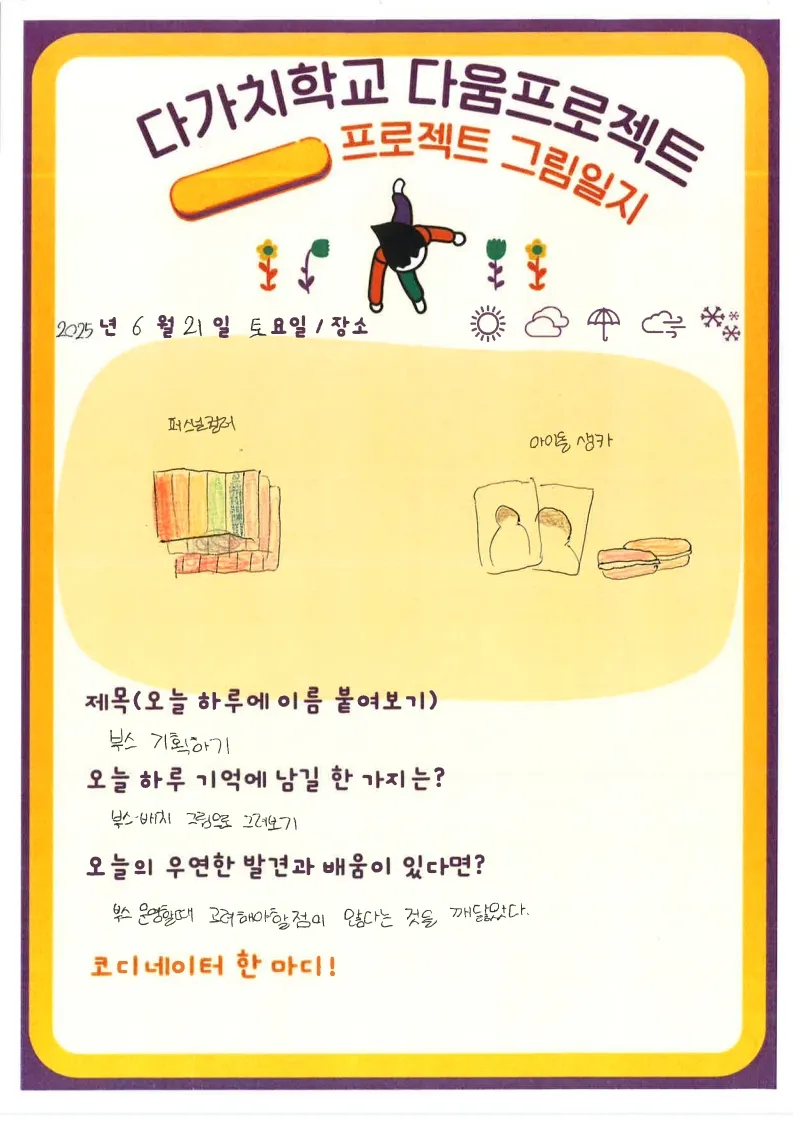 다가치학교 다움프로젝트
프로젝트 그림일지
2025 년 6 월 21 일 토요일 / 장소
퍼스널컬러
아이돌 생카
제목(오늘 하루에 이름 붙여보기)
부스 기획하기
오늘 하루 기억에 남길 한 가지는?
부스 배치 그림으로 그려보기
오늘의 우연한 발견과 배움이 있다면?
부스 운영할때 고려해야할점이 많다는 것을 깨달았다.
코디네이터 한 마디!